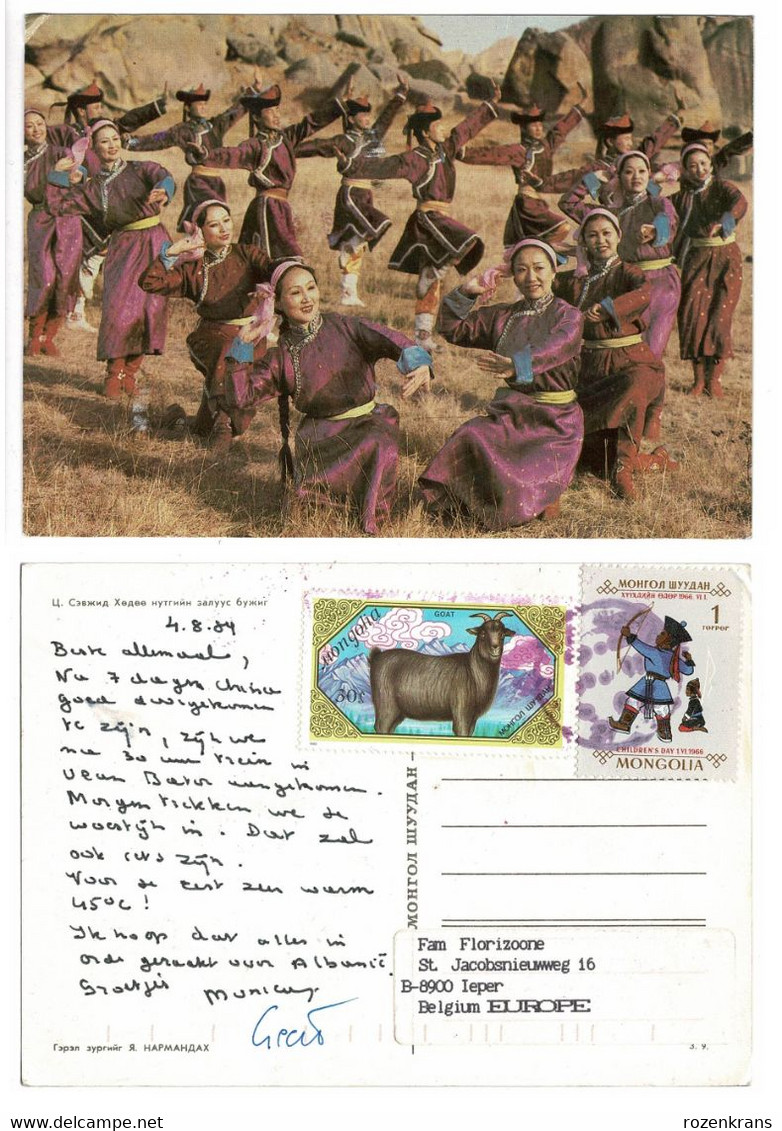 Ц. Сэвжид Хөдөө нутгийн залуус бужиг
4.8.
Beste allemaal,
Na 7 dagen China
goed doorgekomen
te zijn, zijn we
na 30 uur trein in
Ulaan Bator aangekomen.
Morgen trekken we de
woestijn in. Dat zal
ook iets zijn.
Voor de rest zeer warm
45°C!
Ik hoop dat alles in
orde geraakt voor Albanië.
Groetjes
GOAT
Mongolia
30
МОНГОЛ ШУУДАН
МОНГОЛ ШУУДАН
ХҮҮХДИЙН ӨДӨР 1966. VI.1.
1
ТӨГРӨГ
CHILDREN'S DAY 1.VI.1966
MONGOLIA
МОНГОЛ ШУУДАН
Fam Florizoone
St. Jacobsnieuwweg 16
B-8900 Ieper
Belgium EUROPE
Гэрэл зургийг Я. НАРМАНДАХ
3. 9.
rozenkrans